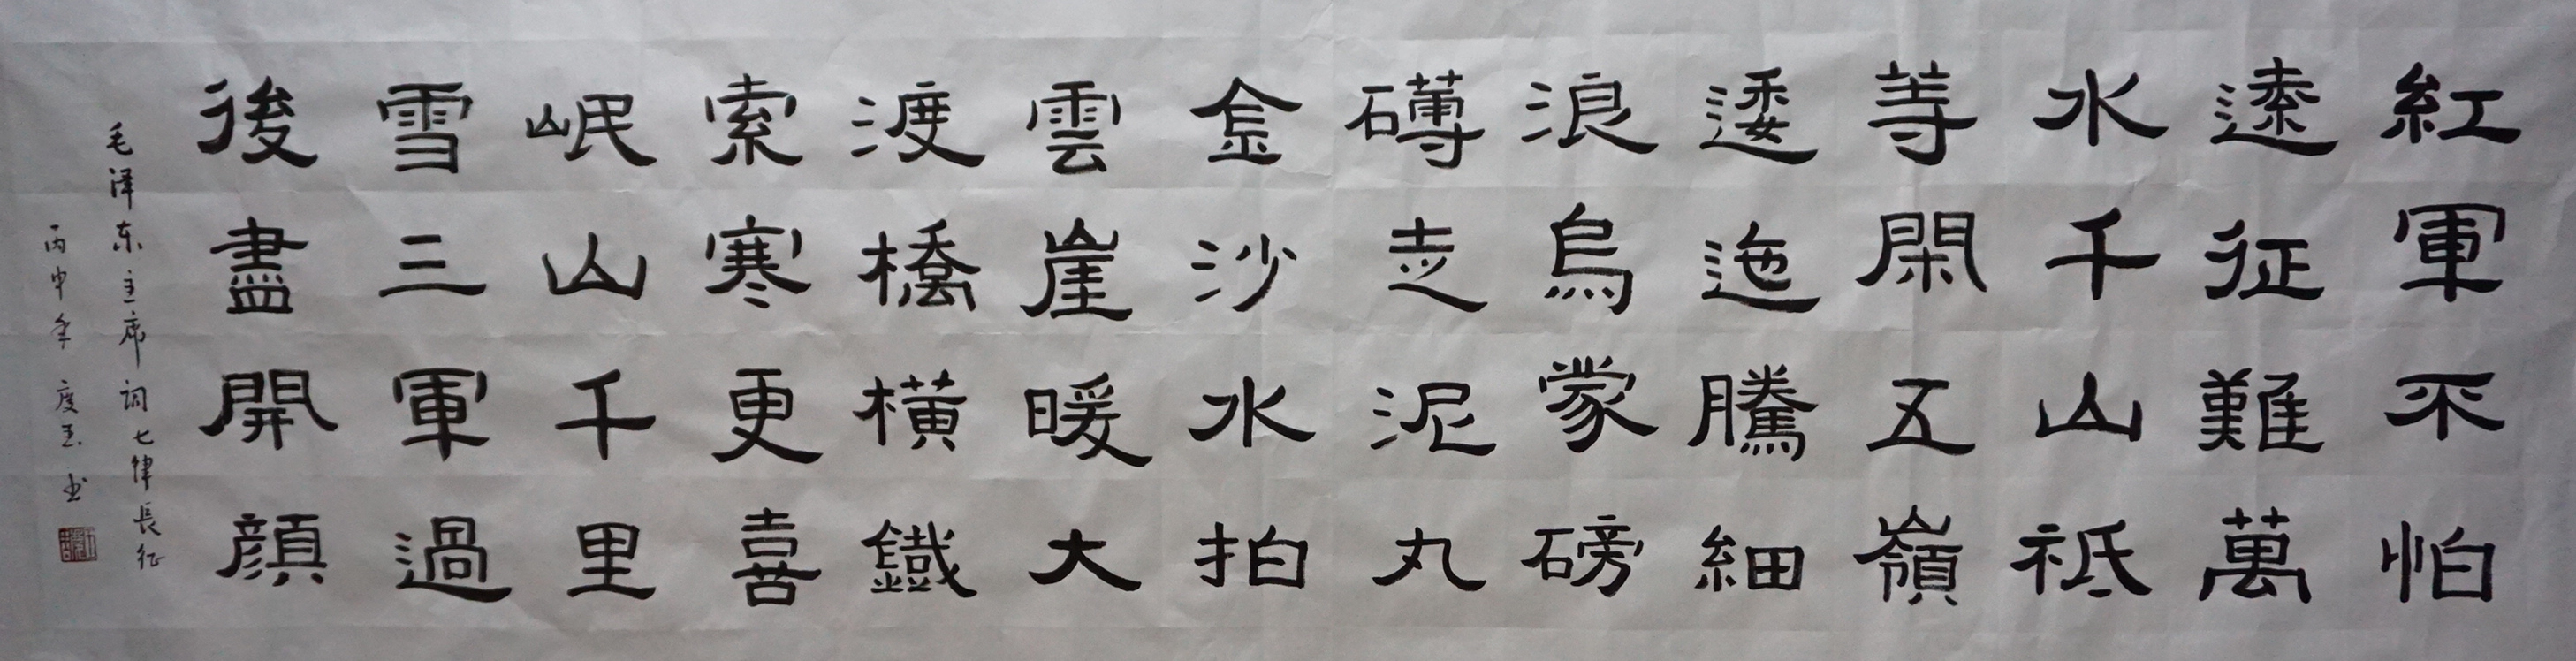 紅軍不怕
遠征難萬
水千山祗
等閑五嶺
逶迤騰細
浪烏蒙磅
礴走泥丸
金沙水拍
雲崖暖大
渡橋橫鐵
索寒更喜
岷山千里
雪三軍過
後盡開顏
毛泽东主席词七律長征
丙申年 度玉书